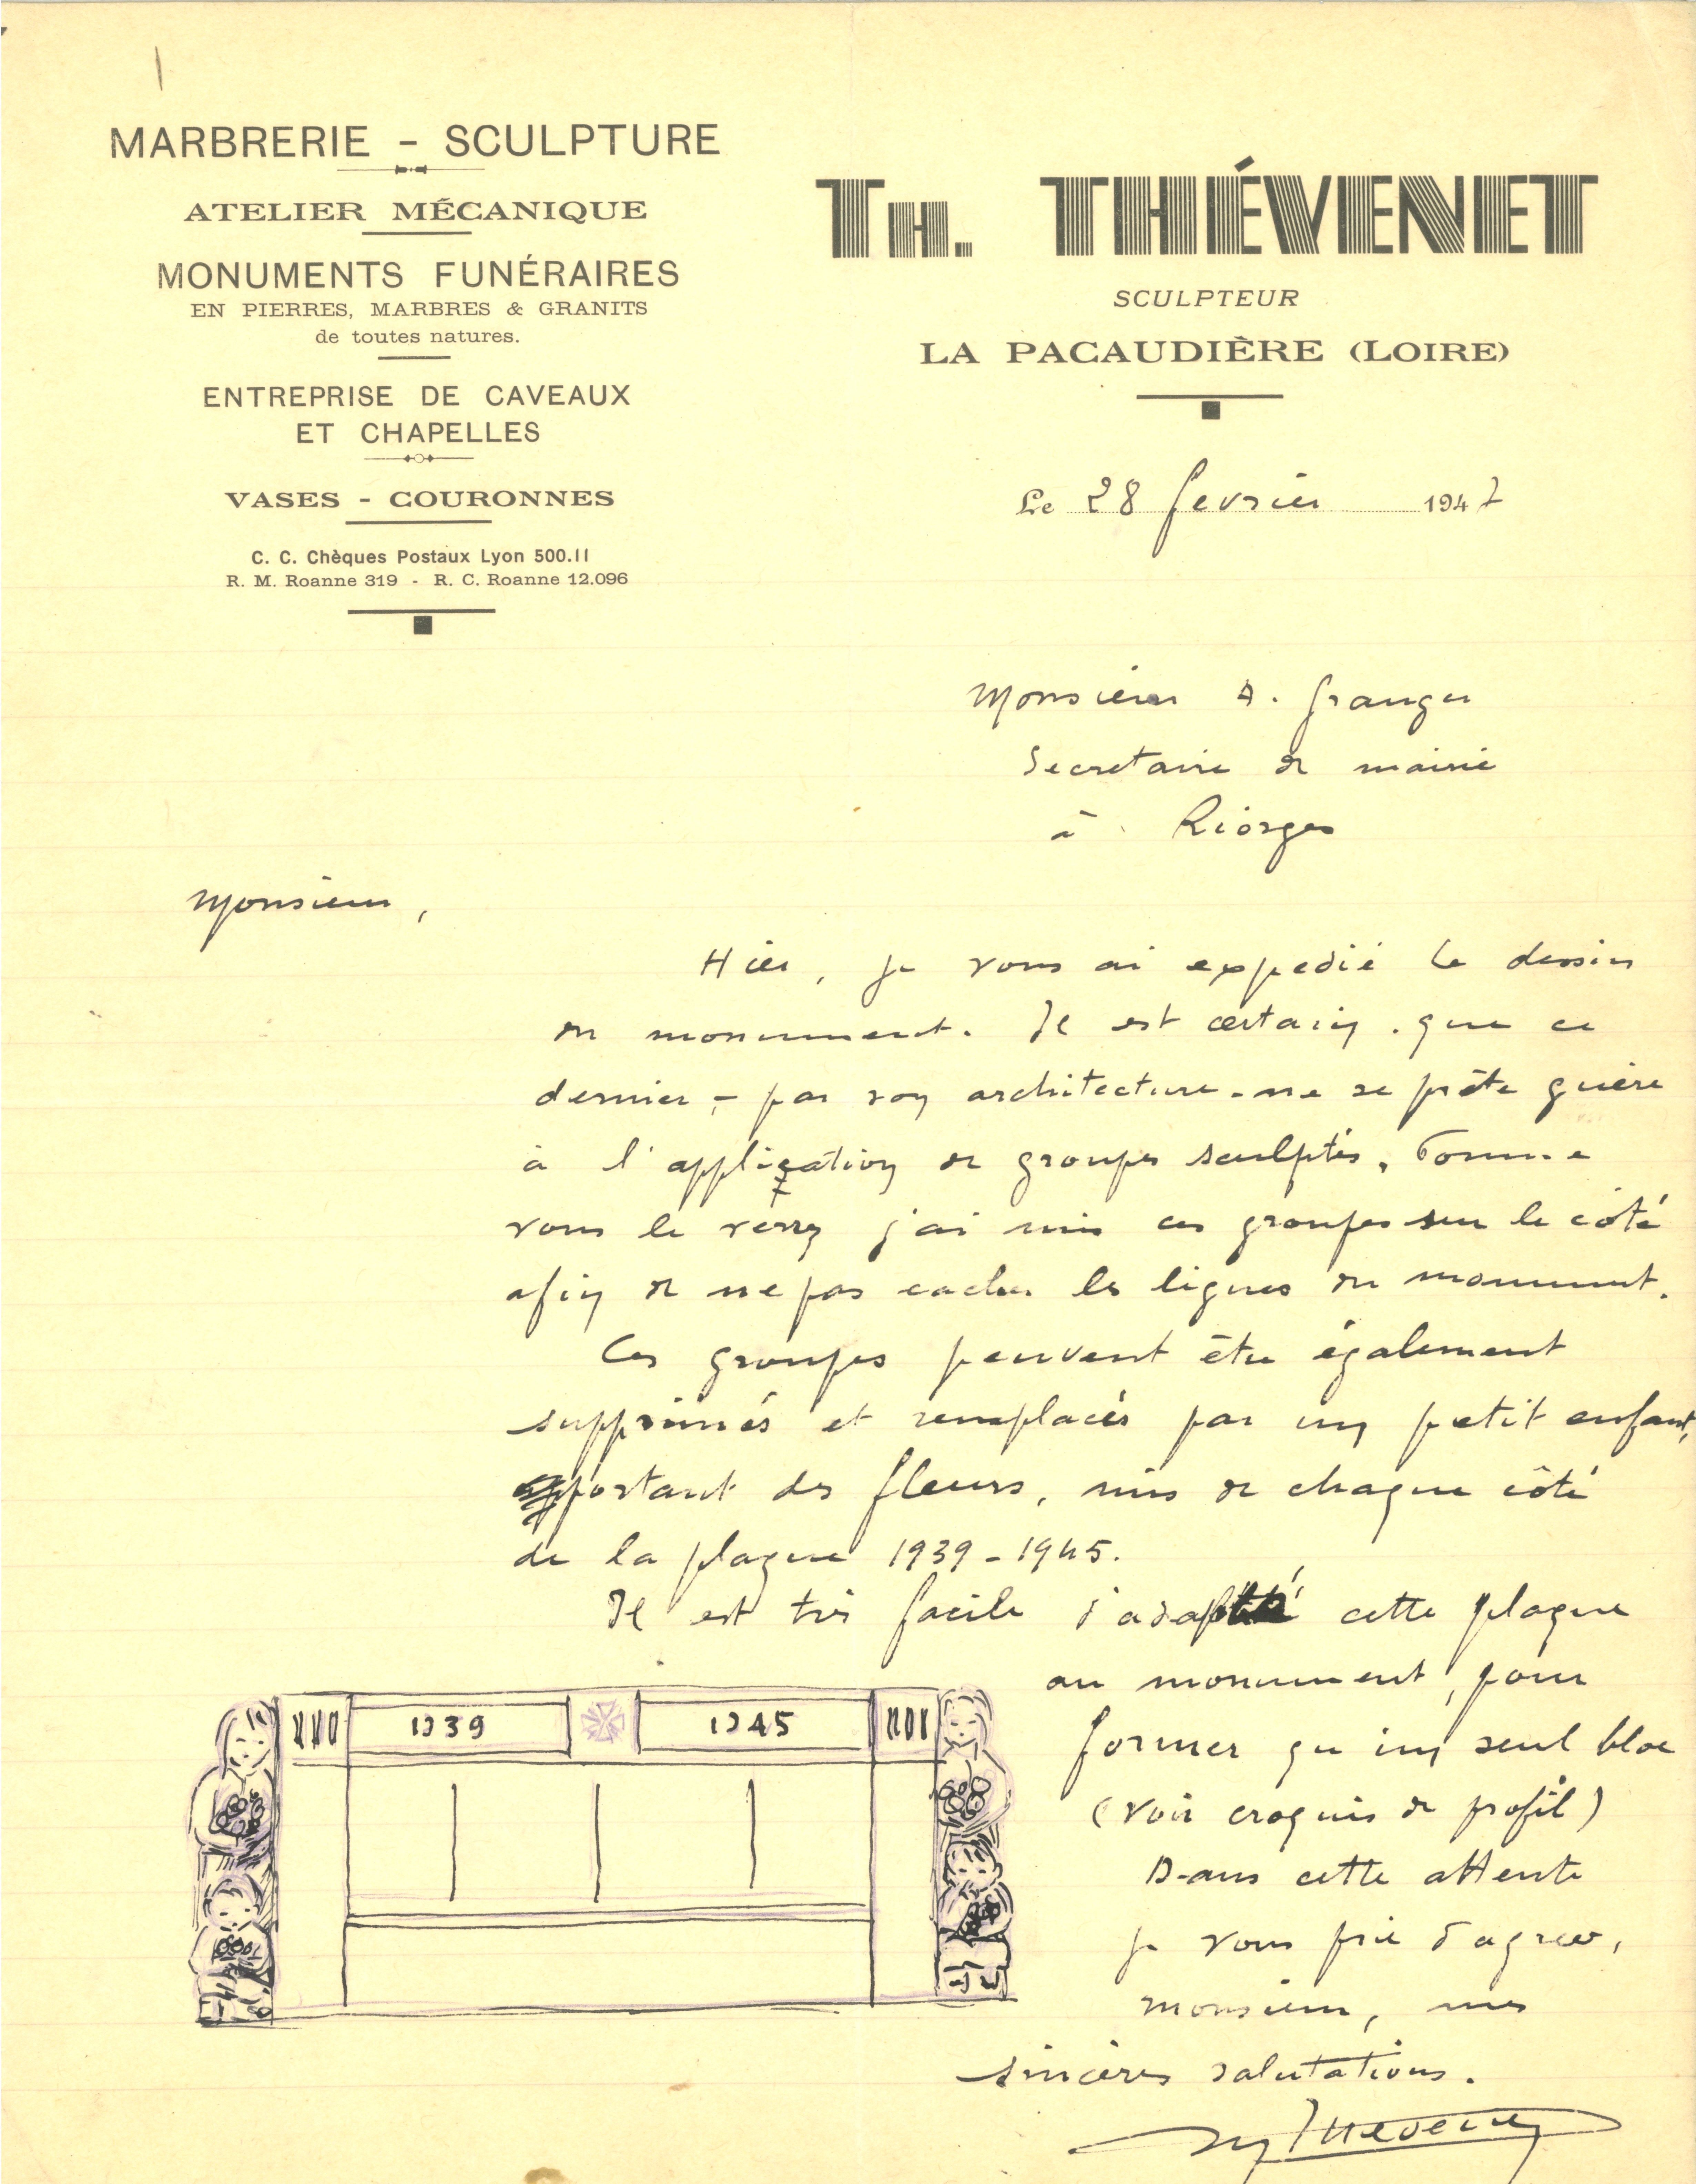 MARBRERIE - SCULPTURE
ATELIER MÉCANIQUE
MONUMENTS FUNÉRAIRES
EN PIERRES, MARBRES & GRANITS
de toutes natures.
ENTREPRISE DE CAVEAUX
ET CHAPELLES
VASES - COURONNES
C. C. Chèques Postaux Lyon 500.11
R. M. Roanne 319 - R. C. Roanne 12.096
TH. THÉVENET
SCULPTEUR
LA PACAUDIÈRE (LOIRE)
Le 28 fevrier 1947
Monsieur A. Granger
Secretaire de mairie
à Riorges
Monsieur,
Hier, je vous ai expedié le dessin
du monument. Il est certain que ce
dernier - par son architecture - ne se prête guère
à l'application de groupes sculptés. Comme
vous le verrez j'ai mis ces groupes sur le côté
afin de ne pas cacher les lignes du monument.
Ces groupes peuvent être également
supprimés et remplacés par un petit enfant,
portant des fleurs, mis de chaque côté
de la plaque 1939 - 1945.
Il est très facile d'adapté cette plaque
au monument, pour
former qu'un seul bloc
(voir croquis de profil)
Dans cette attente
je vous prie d'agréer,
monsieur, mes
sincères salutations.
Thevenet
1939 1945